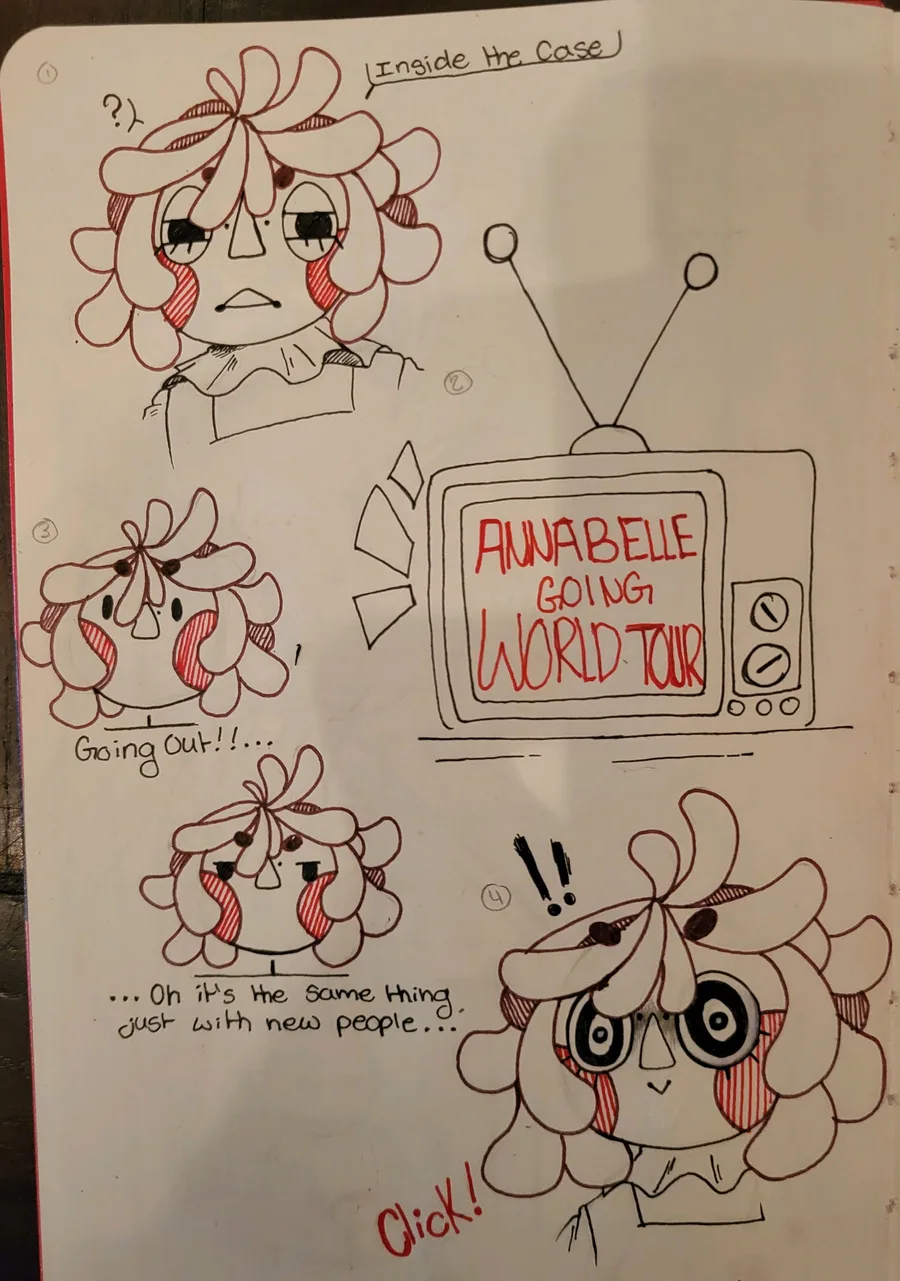 1
Inside the Case
?
2
ANNABELLE
GOING
WORLD TOUR
3
Going Out!!...
...Oh it's the same thing
just with new people...
4
!!
Click!